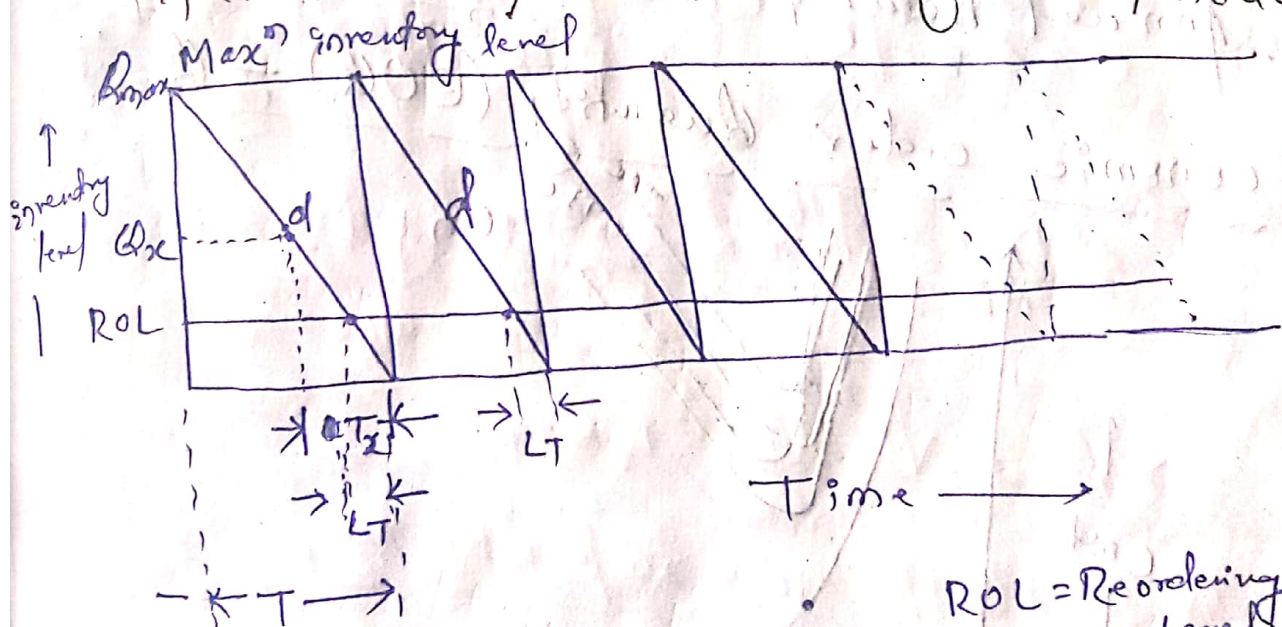 Maxᵐ inventory level
Qmax
↑
inventory
level
Qx
d
d
ROL
Tx
LT
LT
Time →
T
ROL = Reordering